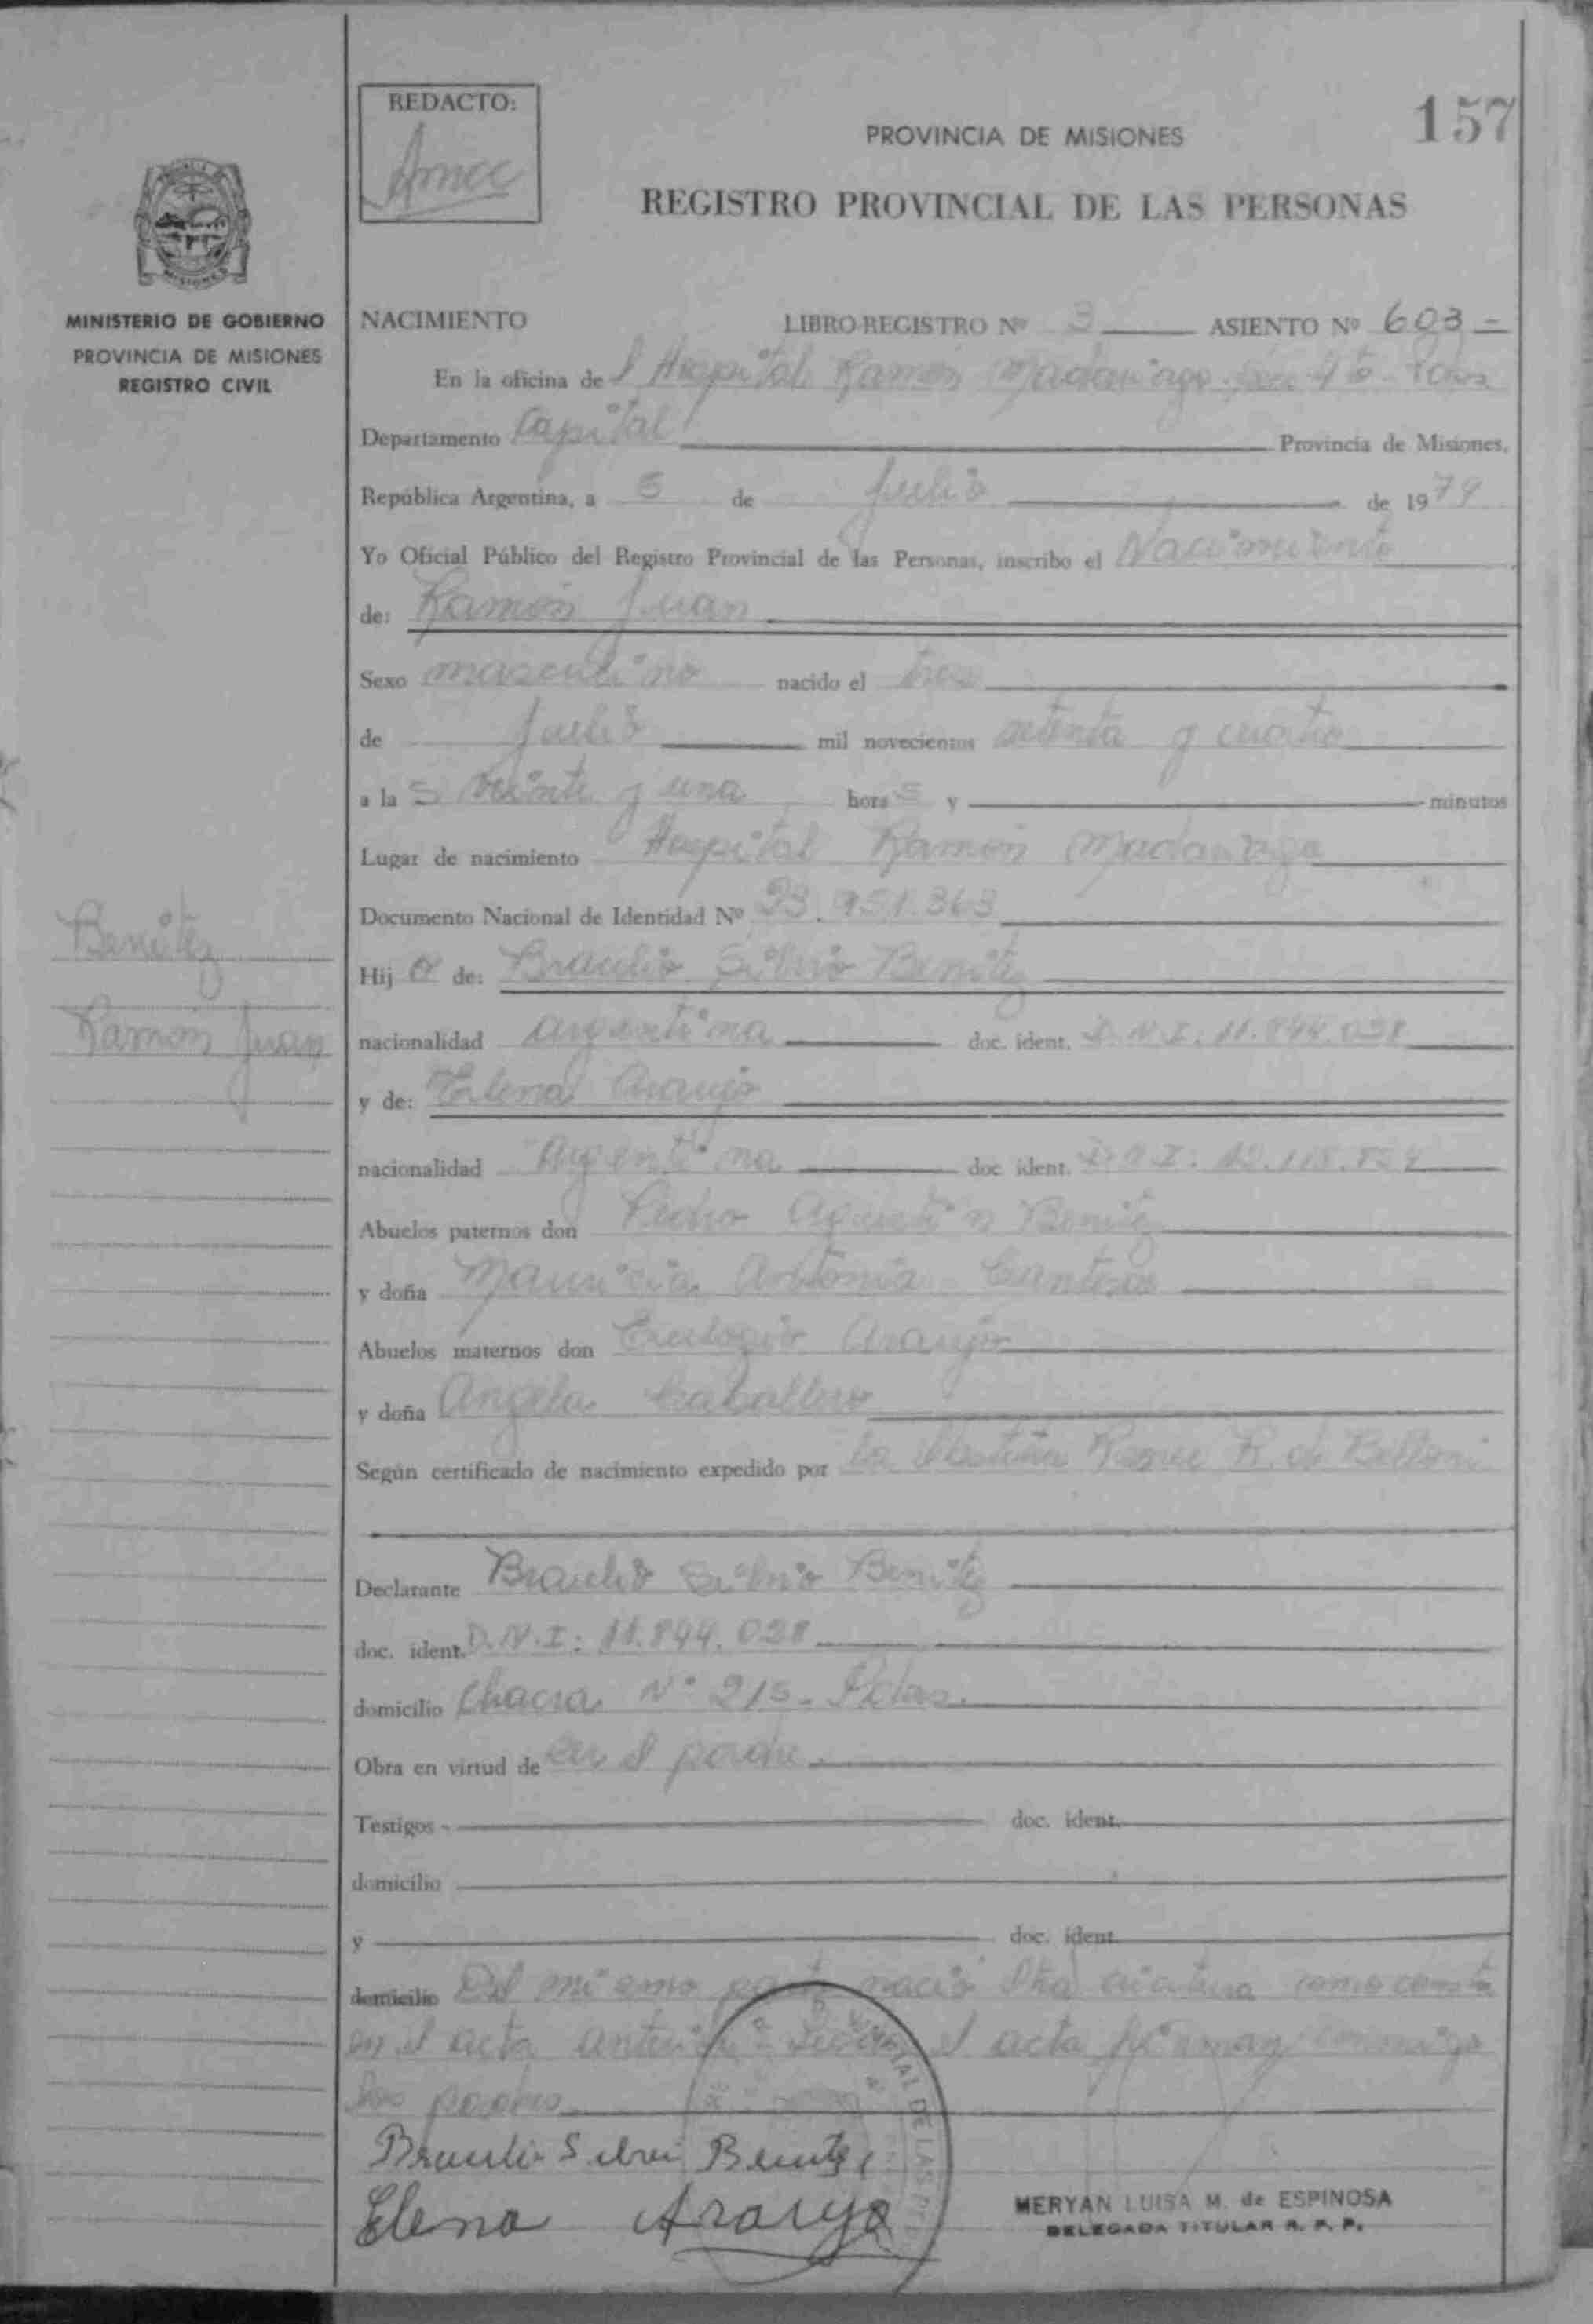 REDACTO:
Amcc
157
PROVINCIA DE MISIONES
REGISTRO PROVINCIAL DE LAS PERSONAS
MISIONES
MINISTERIO DE GOBIERNO
PROVINCIA DE MISIONES
REGISTRO CIVIL
NACIMIENTO LIBRO-REGISTRO Nº 3 ASIENTO Nº 603-
En la oficina del Hospital Ramón Madariaga
Departamento Capital Provincia de Misiones,
República Argentina, a 5 de Julio de 1974
Yo Oficial Público del Registro Provincial de las Personas, inscribo el Nacimiento
de: Ramón Juan
Sexo masculino nacido el tres
de Julio mil novecientos setenta y cuatro
a las veinte y una horas y minutos
Lugar de nacimiento Hospital Ramón Madariaga
Documento Nacional de Identidad Nº 23.951.363
Benítez
Hijo de: Braulio Silvio Benítez
Ramón Juan
nacionalidad argentina doc. ident. D.N.I: 11.844.028
y de: Elena Araujo
nacionalidad Argentina doc ident. D.N.I: 12.118.854
Abuelos paternos don Pedro Agustín Benítez
y doña Mauricia Antonia Canteros
Abuelos maternos don Eulogio Araujo
y doña Angela Caballero
Según certificado de nacimiento expedido por la R. de Belloni
Declarante Braulio Silvio Benítez
doc. ident. D.N.I: 11.844.028
domicilio Chacra Nº 215- Pdas.
Obra en virtud de ser el padre.
Testigos - doc. ident.
domicilio
y doc. ident.
domicilio Del mismo parto nació otra criatura como consta
en el acta anterior - Leída el acta firman conmigo
los padres
Braulio Silvio Benitez
Elena Araujo
MERYAN LUISA M. de ESPINOSA
DELEGADA TITULAR R. P. P.